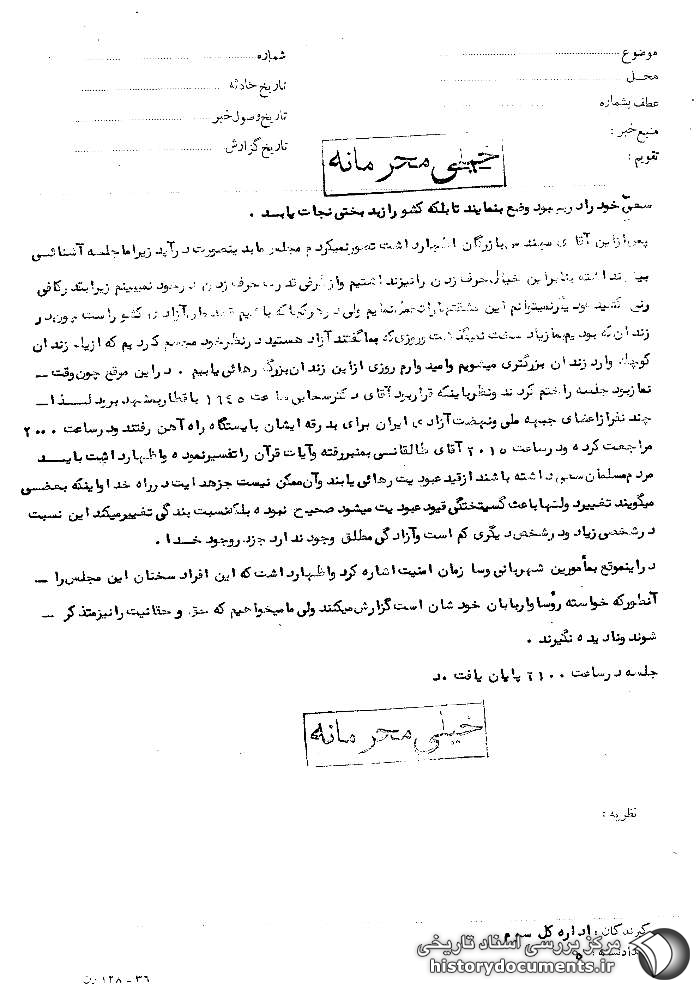 موضوع
شماره
محل
تاریخ حادثه
عطف بشماره
تاریخ وصول خبر
منبع خبر :
تاریخ گزارش
تقویم :
خیلی محرمانه
سعی خود را در بهبود وضع بنمایند تا بلکه کشور از بدبختی نجات یابد .
پس از این آقای مهندس بازرگان اظهار داشت تصور نمیکردم مجلس ما بدینصورت درآید زیرا ما جلسه آشنائی
داشته بنابراین خیال حرف زدن را نیز نداشتیم و از طرفی قدرت حرف زدن در خود نمیبینم زیرا بقدر کافی
این ولی در هر کجا که باشیم آزادی کشور است امروز در
زندان که بودیم بما زیاد سخت نمیگذشت و روزی که بما گفتند آزاد هستید در نظر خود مجسم کردیم که از یک زندان
کوچک وارد زندان بزرگتری میشویم و امیدوارم روزی از این زندان بزرگ رهائی یابیم . در این موقع چون وقت ـ
نماز بود جلسه را ختم کردند و نظر باینکه قرار بود آقای دکتر سحابی ساعت ۱۶۴۵ با قطار بمشهد برود لذا ـ
چند نفر از اعضای جبهه ملی و نهضت آزادی ایران برای بدرقه ایشان بایستگاه راه آهن رفتند و در ساعت ۲۰۰۰
مراجعت کرده و در ساعت ۲۰۱۵ آقای طالقانی بمنبر رفته و آیات قرآن را تفسیر نموده و اظهار داشت بایـد
مردم مسلمان سعی داشته باشند از قید عبودیت رهائی یابند و آن ممکن نیست جز هدایت در راه خدا و اینکه بعضی
میگویند تغییر دولتها باعث گسیختگی قیود عبودیت میشود صحیح نبوده بلکه نسبت بندگی تغییر میکند این نسبت
در شخصی زیاد و در شخص دیگری کم است و آزادگی مطلق وجود ندارد جز در وجود خدا .
در اینموقع بمأمورین شهربانی و سازمان امنیت اشاره کرد و اظهار داشت که این افراد سخنان این مجلس را ـ
آنطور که خواسته رؤسا و اربابان خودشان است گزارش میکنند ولی ما میخواهیم که حق و حقانیت را نیز متذکر ـ
شوند و نادیده نگیرند .
جلسه در ساعت ۲۱۰۰ پایان یافت .د
خیلی محرمانه
نظریه :
گیرندگان : اداره کل سوم
مرکز بررسی اسناد تاریخی
historydocuments.ir
۳۶ - ۱۲۸